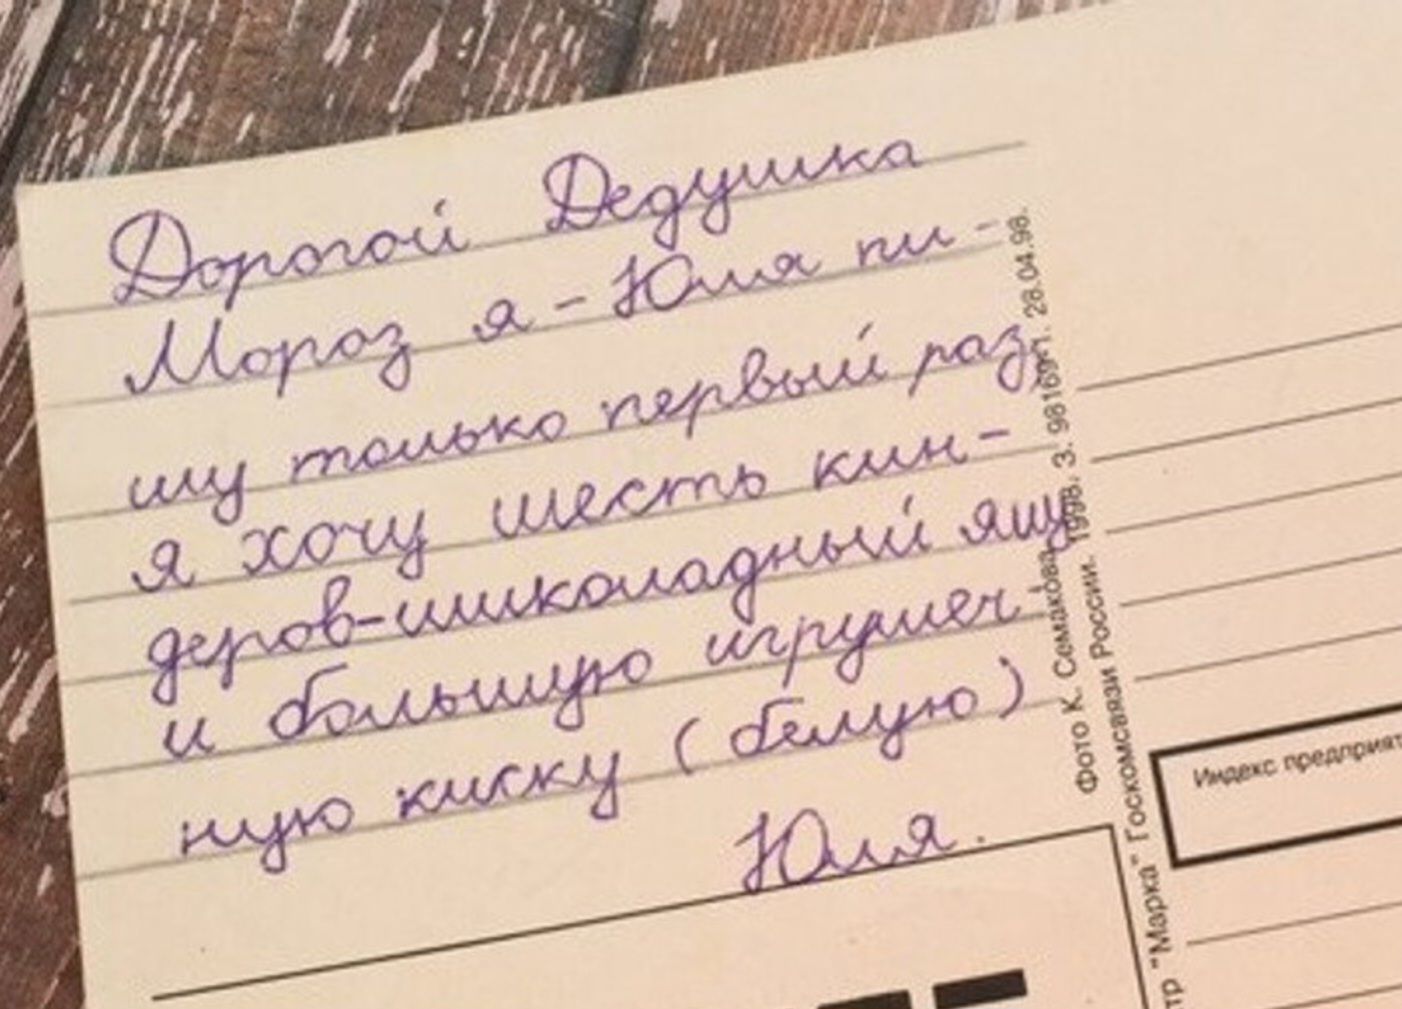 Дорогой Дедушка
Мороз я - Юля пи-
шу только первый раз,
я хочу шесть кин-
деров-шиколадный ящ
и большую игрушеч
ную киску (белую)
Юля.
Фото К. Семакова. 1998. З. 98169 п. 28.04.98.
"Марка" Госкомсвязи России.
Индекс